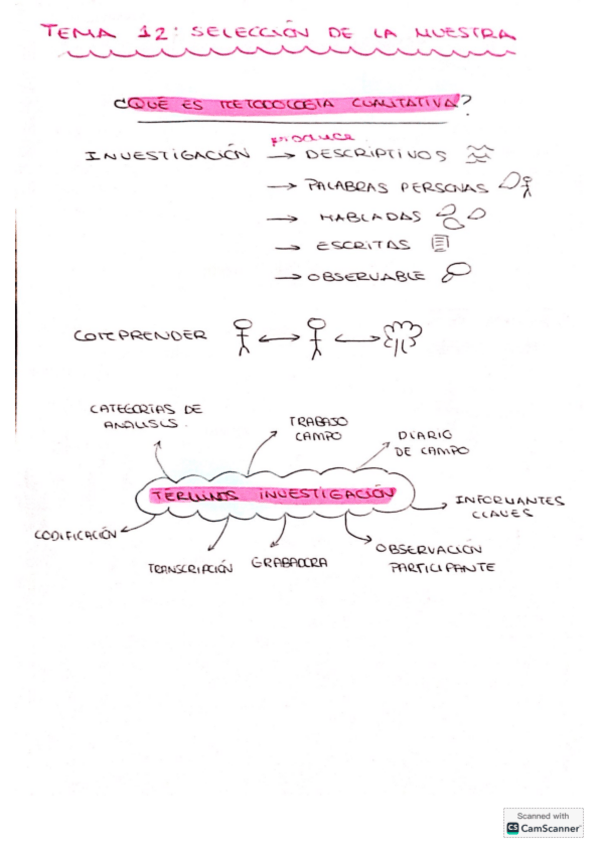 TEMA 12: SELECCIÓN DE LA MUESTRA
¿QUÉ ES METODOLOGÍA CUALITATIVA?
produce
INVESTIGACIÓN → DESCRIPTIVOS
→ PALABRAS PERSONAS
→ HABLADAS
→ ESCRITAS
→ OBSERVABLE
COMPRENDER
CATEGORÍAS DE
ANÁLISIS.
TRABAJO
CAMPO
DIARIO
DE CAMPO
TÉRMINOS INVESTIGACIÓN
INFORMANTES
CLAVES
CODIFICACIÓN
TRANSCRIPCIÓN
GRABADORA
OBSERVACIÓN
PARTICIPANTE
Scanned with
CS CamScanner